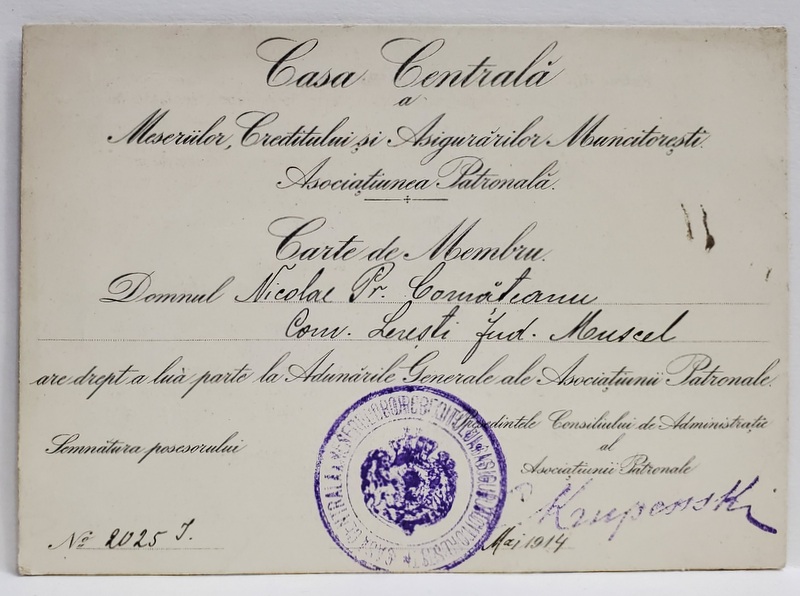 Casa Centrală
a
Meseriilor, Creditului și Asigurărilor Muncitorești.
Asociațiunea Patronală.
Carte de Membru.
Domnul Nicolae Pr. Comățeanu
Com. Lerești Jud. Muscel
are drept a luà parte la Adunările Generale ale Asociațiunii Patronale.
Președintele Consiliului de Administrație
al
Asociațiunii Patronale
Semnătura posesorului
Krupenski
No 2025 J.
Mai 1914
CASA CENTRALĂ A MESERIILOR